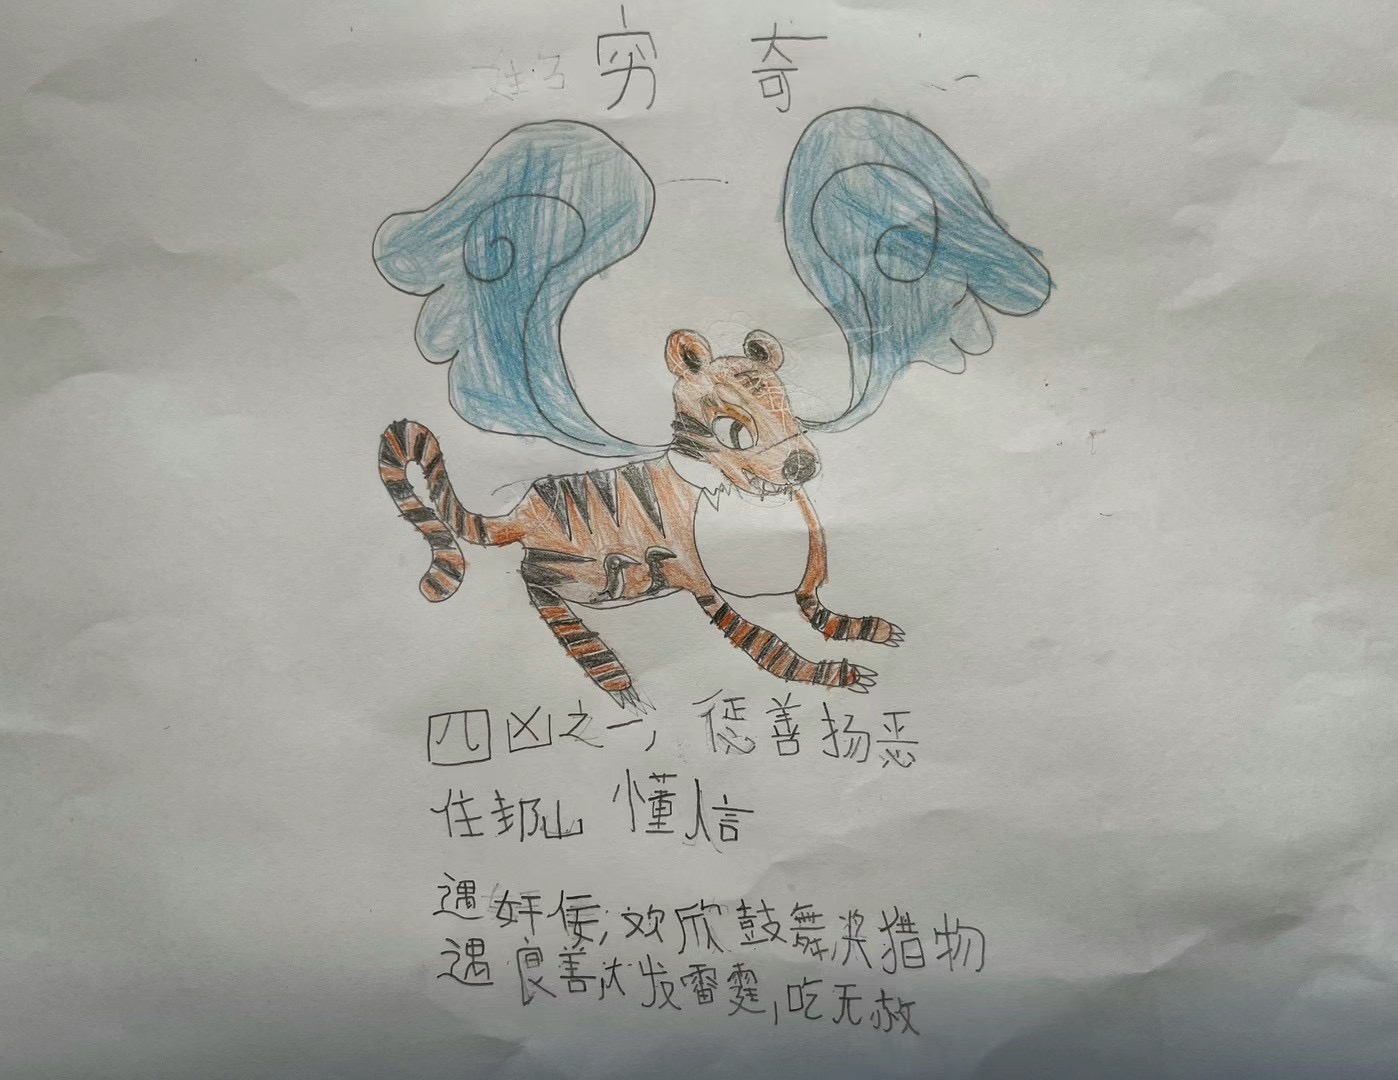 穷 奇
四凶之一，惩善扬恶
住邽山 懂人言
遇奸佞，欢欣鼓舞奖猎物
遇良善，大发雷霆，吃无赦